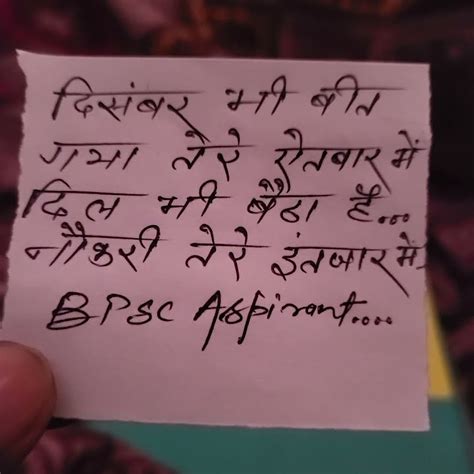 दिसंबर भी बीत
गया तेरे ऐतबार में
दिल भी बैठा है...
नौकरी तेरे इंतजार में
BPSC Aspirant....